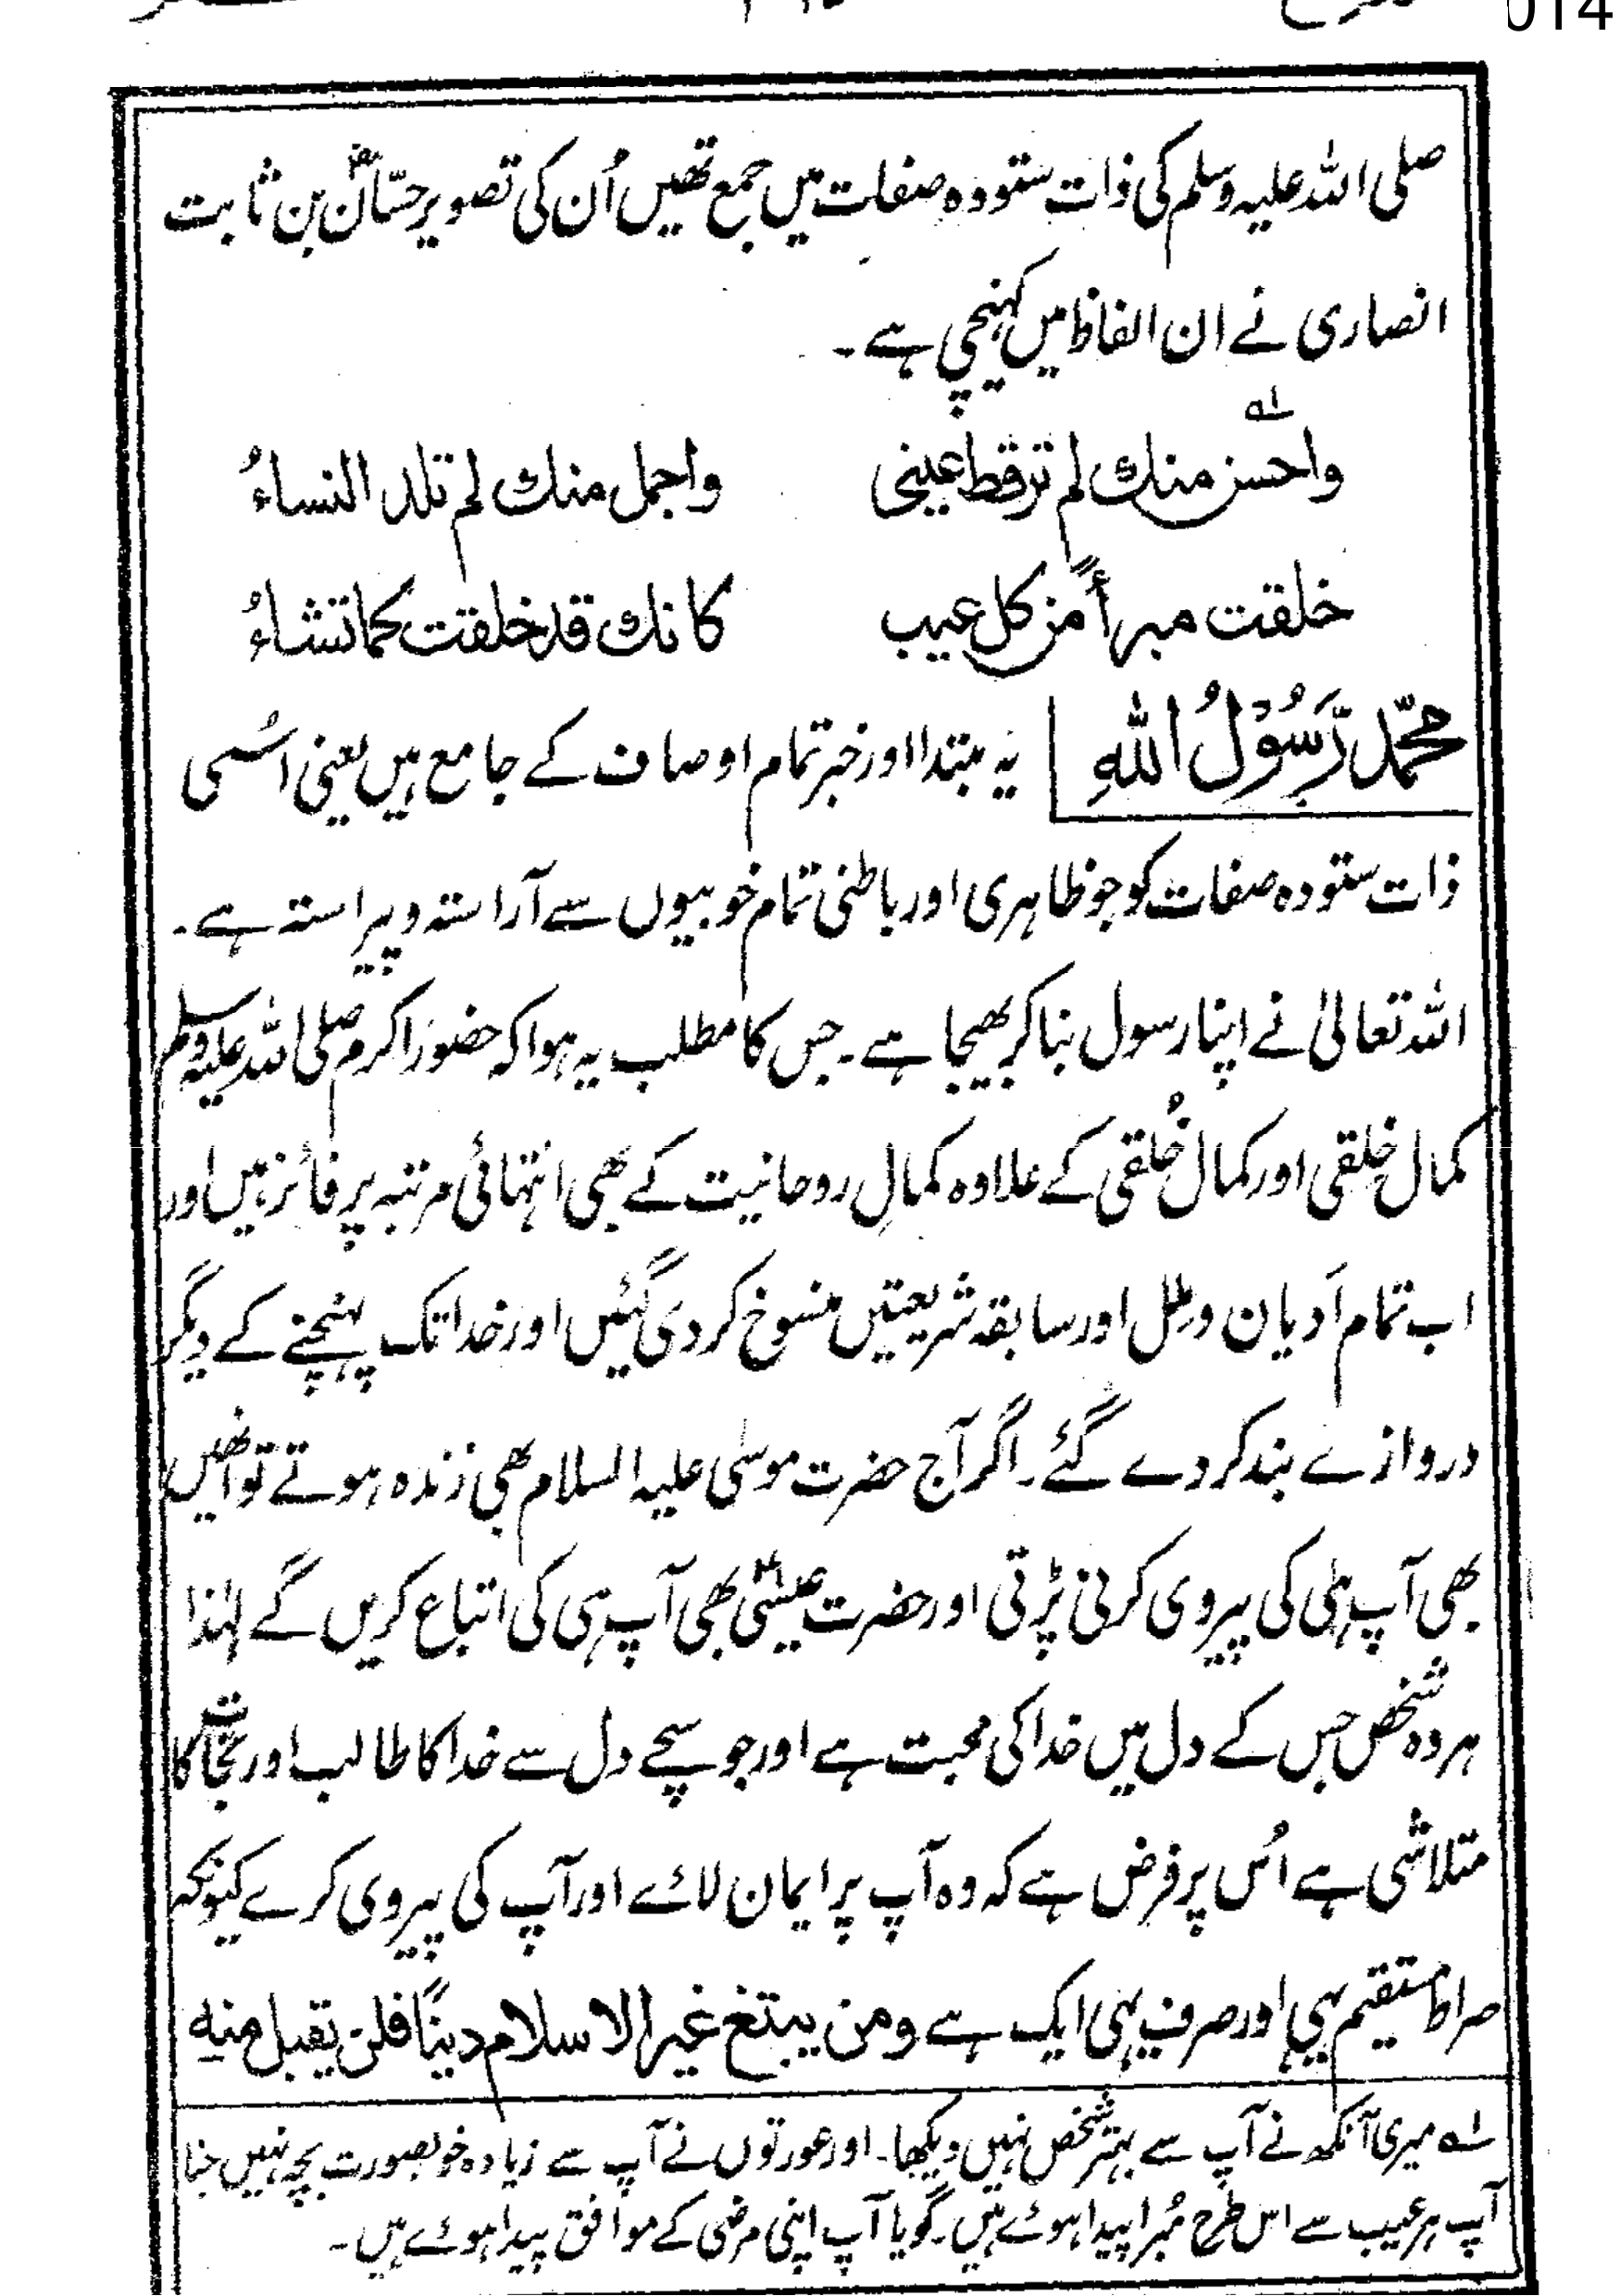 014
صلی اللہ علیہ وسلم کی ذات ستودہ صفات میں جمع تھیں اُن کی تصویر حسّانؓ بن ثابت
انصاری نے ان الفاظ میں کہنچی ہے ۔
واحسن منك لم ترقط عینی واجمل منك لم تلد النساءُ
خلقت مبرأً من کل عیب کانك قد خلقت کما تشاءُ
محمّد رَّسُوْلُ اللهِ یہ مبتدا اور خبر تمام اوصاف کے جامع ہیں یعنی اسُی
ذات ستودہ صفات کو جو ظاہری اور باطنی تمام خوبیوں سے آراستہ و پیراستہ ہے ۔
اللہ تعالیٰ نے اپنا رسول بنا کر بھیجا ہے ۔ جس کا مطلب یہ ہوا کہ حضور اکرم صلی اللہ علیہ وسلم
کمال خِلقی اور کمال خُلقی کے علاوہ کمالِ روحانیت کے بھی انتہائی مرتبہ پر فائز ہیں اور
اب تمام اَدیان و مِلل اور سابقہ شریعتیں منسوخ کر دی گئیں اور خدا تک پہنچنے کے دیگر
دروازے بند کر دے گئے ۔ اگر آج حضرت موسٰی علیہ السلام بھی زندہ ہوتے تو انھیں
بھی آپ ہی کی پیروی کرنی پڑتی اور حضرت عیسٰیؑ بھی آپ ہی کی اتباع کریں گے لہٰذا
ہر وہ شخص جس کے دل میں خدا کی محبت ہے اور جو سچے دل سے خدا کا طالب اور نجات کا
متلاشی ہے اُس پر فرض ہے کہ وہ آپ پر ایمان لائے اور آپ کی پیروی کرے کیونکہ
صراط مستقیم یہی اور صرف یہی ایک ہے ومن یبتغ غیر الاسلام دینًا فلن یقبل منه
لہ میری آنکھ نے آپ سے بہتر شخص نہیں دیکھا ۔ اور عورتوں نے آپ سے زیادہ خوبصورت بچہ نہیں جنا
آپ ہر عیب سے اس طرح مُبرا پیدا ہوئے ہیں ۔ گویا آپ اپنی مرضی کے موافق پیدا ہوئے ہیں ۔